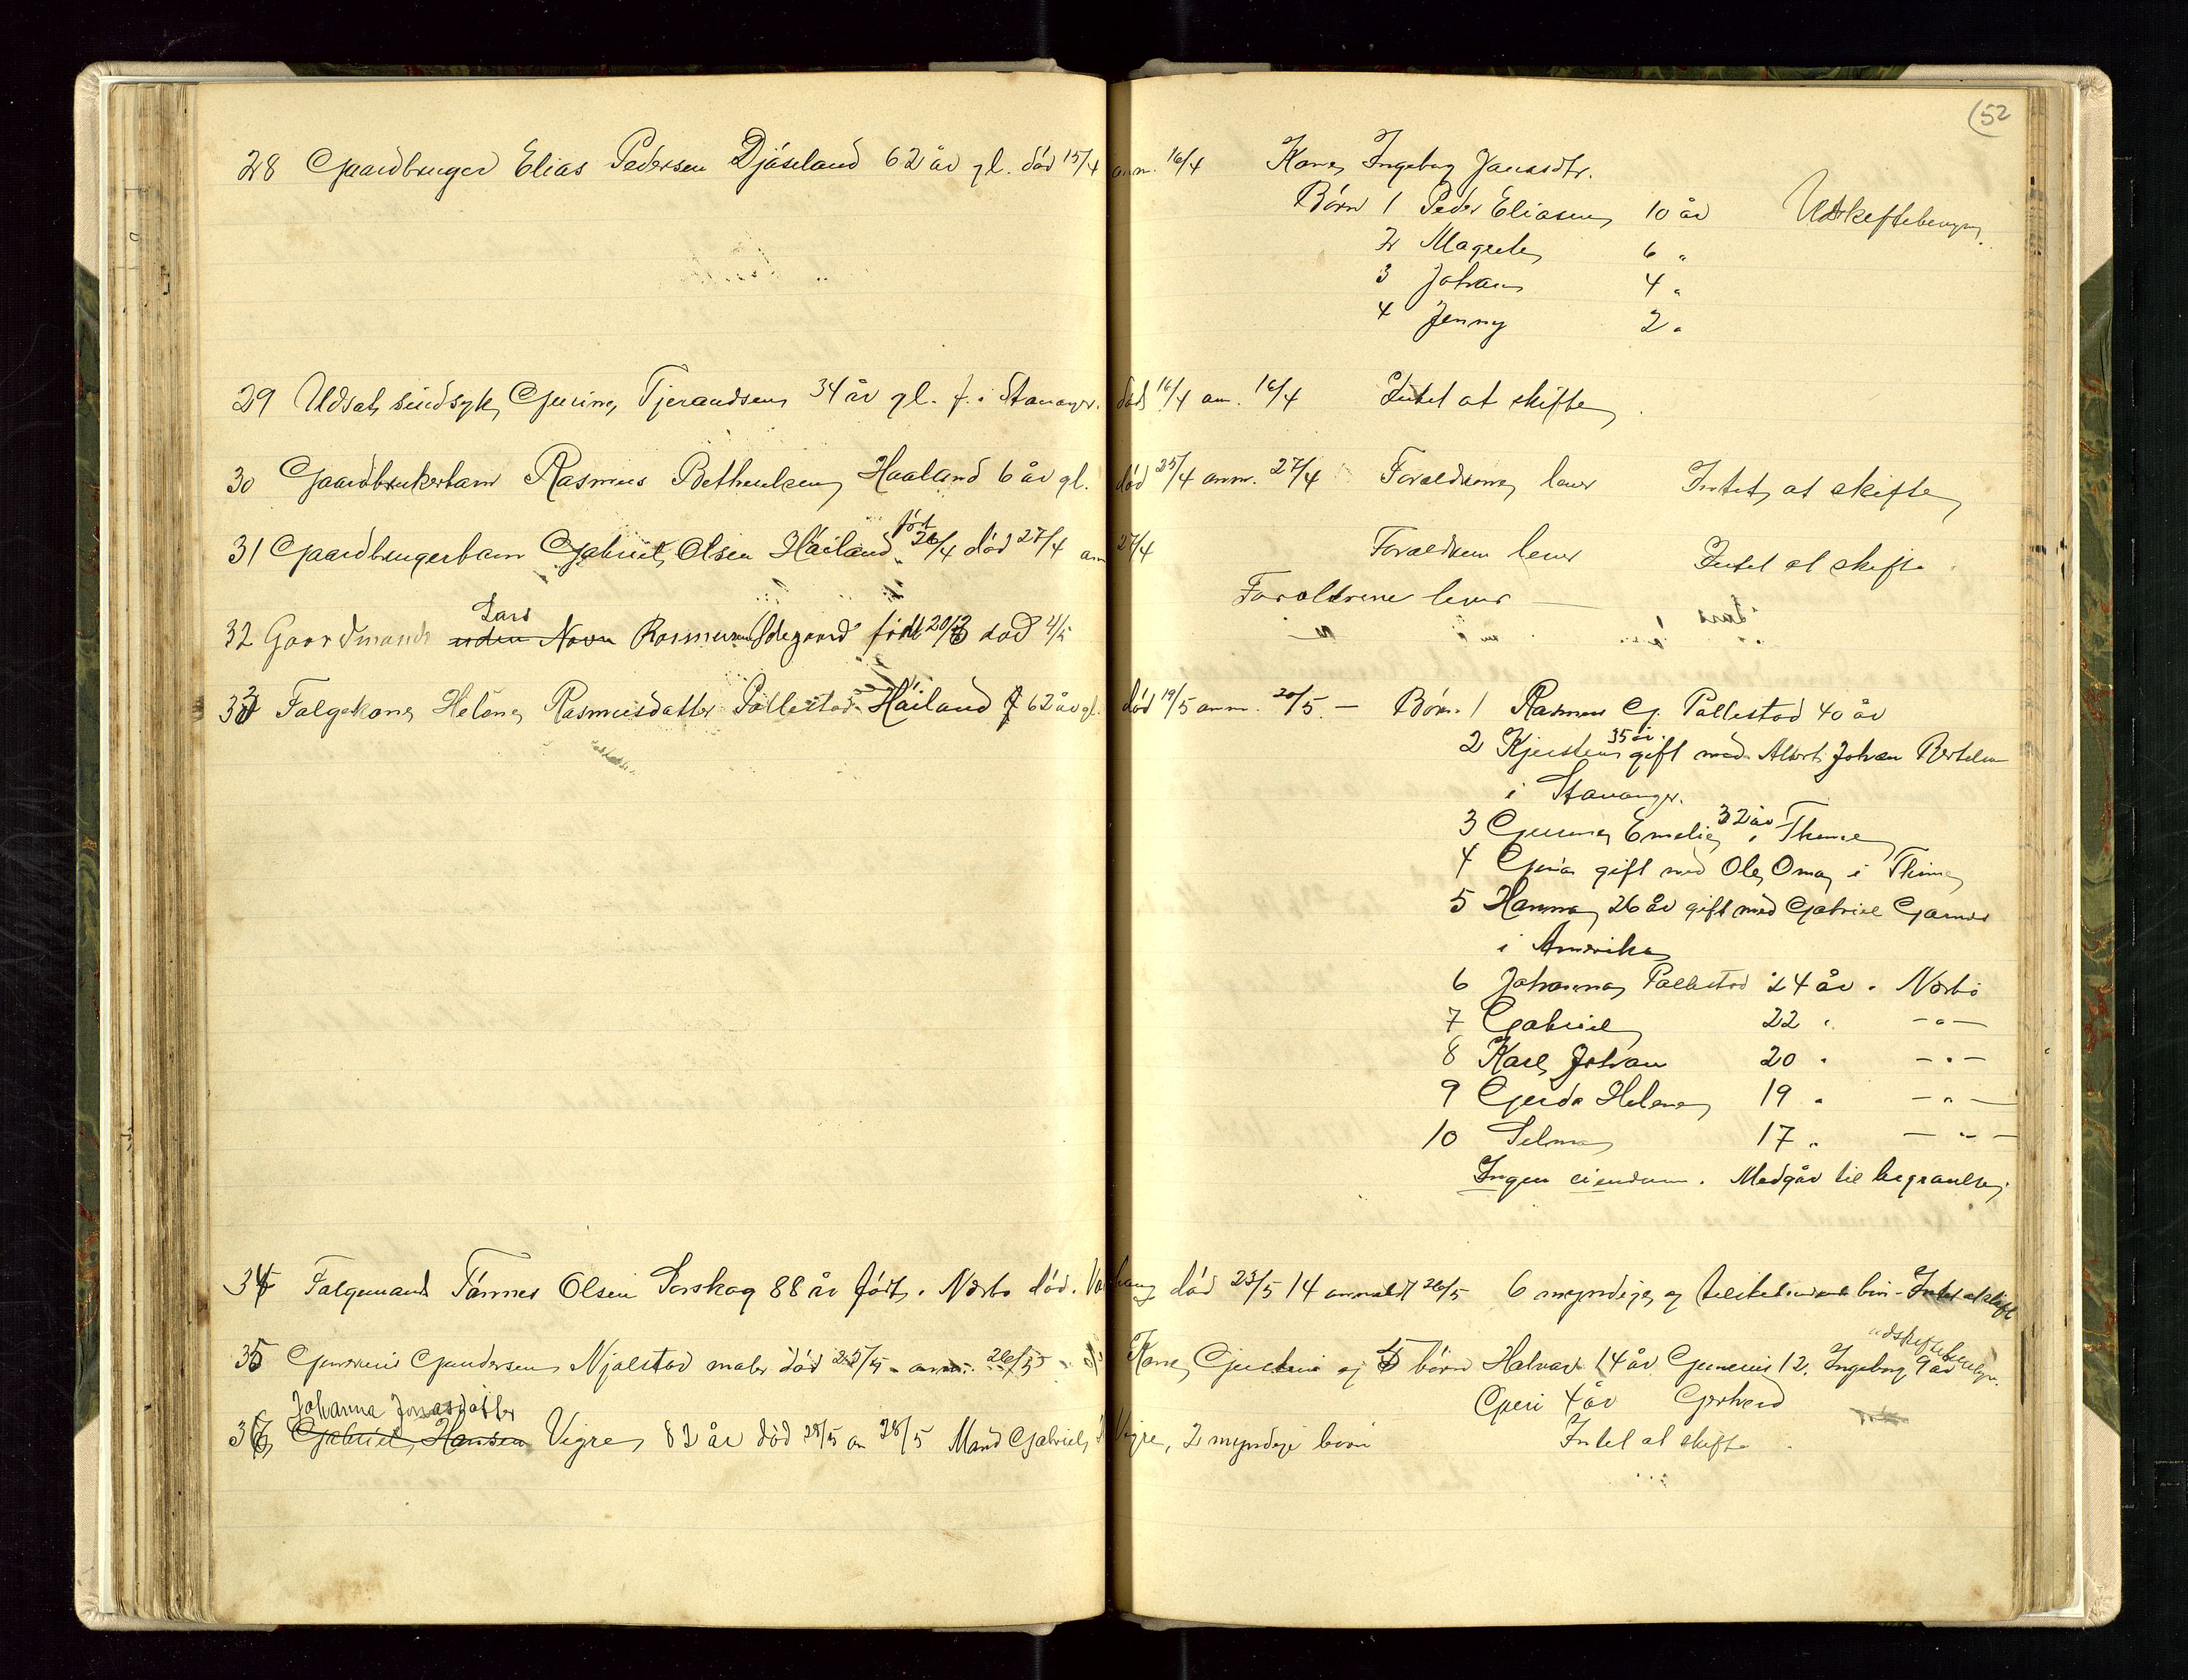 (52
28 Gaardbruger Elias Pedersen Djäseland 62 år gl. död 15/4 anm. 16/4 Kone Ingeborg Janasdtr.
Börn 1 Peder Eliasen 10 år
2 Magrete 6 "
3 Johan 4 "
4 Jenny 2 "
29 Udsat sindsyk Tjerandsen 34 år gl. f. i Stavanger. död 16/4 am. 16/4 Intet at skifte
30 Gaardbrukerbarn Rasmus Bethuelsen Haaland 6 år gl. död 25/4 anm. 27/4 Forældrene lever Intet at skifte
31 Gaardbrugerbarn Gabriel Olsen Håiland föd 26/4 död 27/4 am 27/4 Forældren lever Intet at skifte
Foraldrene lever —
32 Gaardmands uden Navn Lars Rasmussen Ödegaard født 20/3 død 4/5
33 Folgekone Helene Rasmusdatter Pollestad Håiland 62 år gl. död 19/5 anm. 20/5. — Börn. 1 Rasmus G. Pollestad 40 år
2 Kjersten 35 år. gift med Albert Johan Bertelsen
i Stavanger.
3 Emelie 32 år i Thime
4 gift med Ole Oma i Thime
5 Hanna 26 år gift med Gabriel
i Amerika
6 Johanna Pollestad 24 år. Nærbö
7 Gabriel 22 " — " —
8 Karl Johan 20 " — " —
9 Gerda Helene 19 " — " —
10 Selma 17 " — " —
Ingen eiendom. Medgår til begravelse
34 Folgemand Tönnes Olsen Torskog 88 år födt i Nærbö död i Varhaug död 23/5 14 anmeldt 26/5 6 myndige og tilstedeværende börn - Intet at skifte
35 Gundersen Njølstad maler död 25/5 - anm. 26/5 - Kone og 5 börn Halvar 14 år 12. Ingeborg 9 år
4 år Gerhard
Johanna Jonasdatter
36 Gabriel Hansen Vigre 82 år död 28/5 an 28/5 Mand Gabriel Vigre, 2 myndige börn Intet at skifte